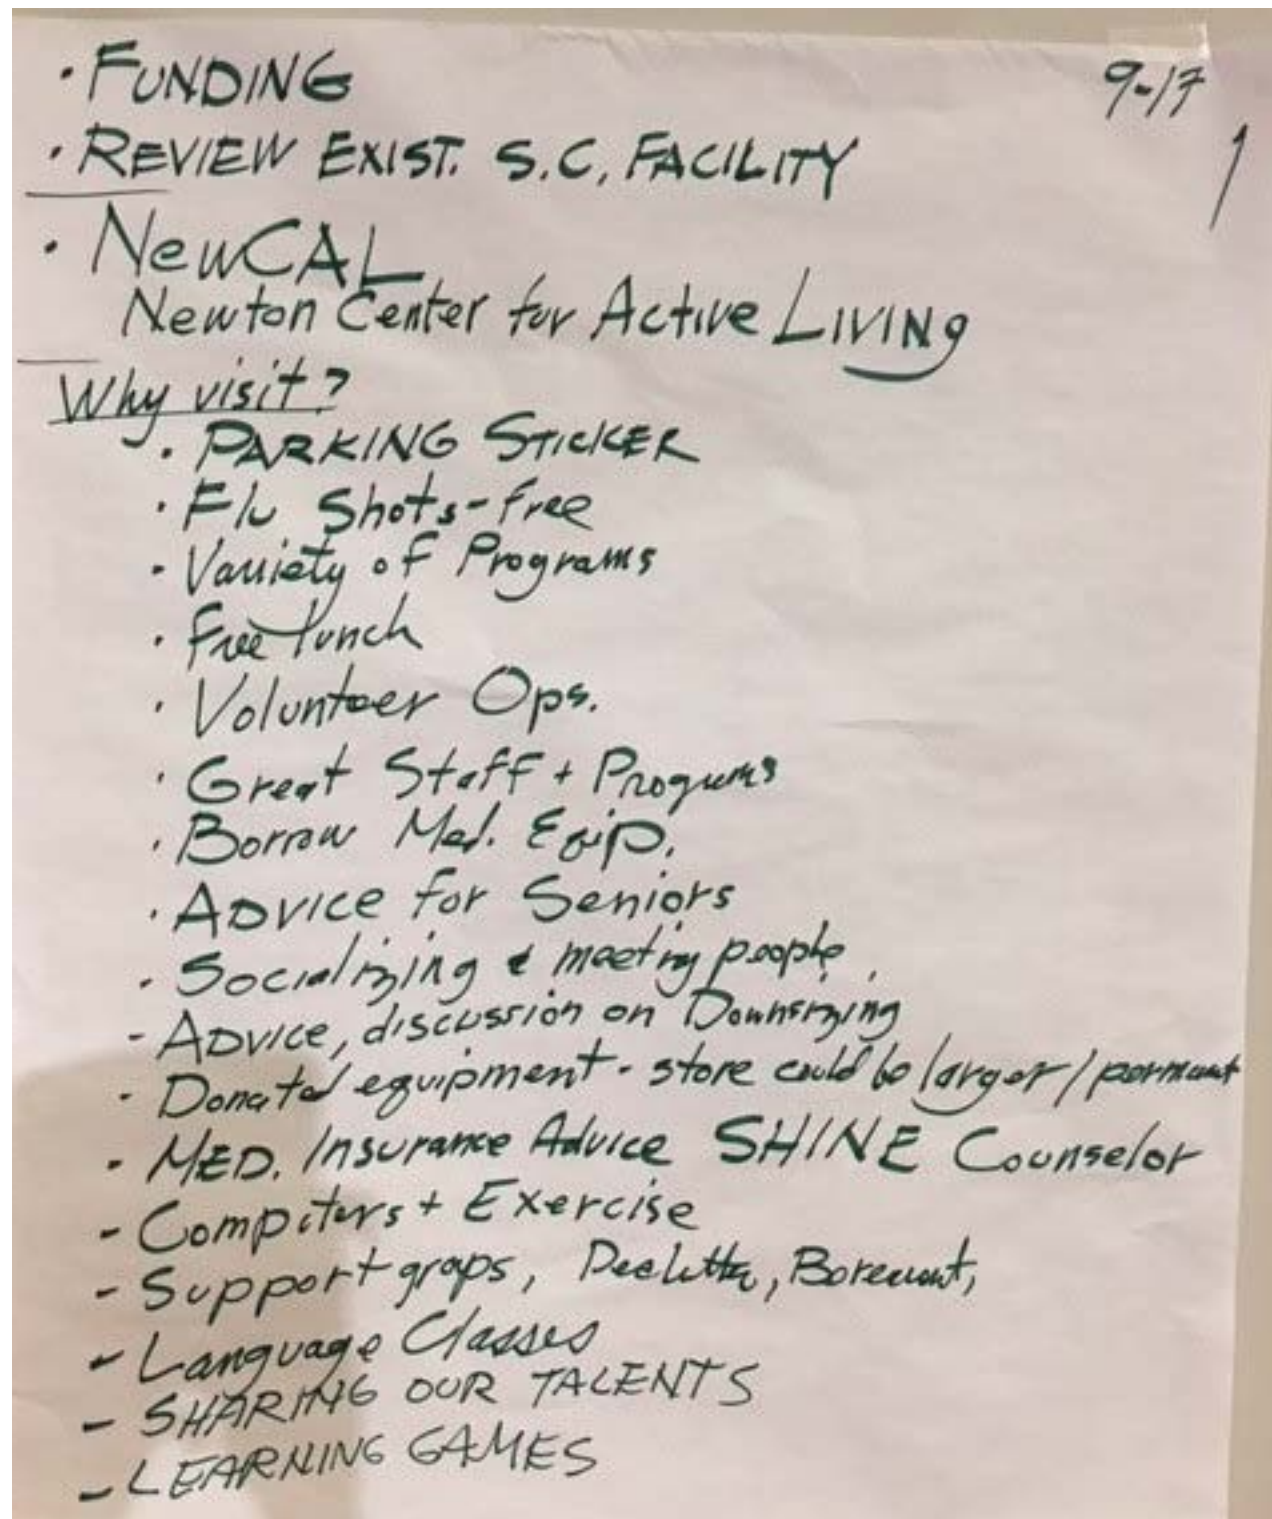 · FUNDING
9-17
· REVIEW EXIST. S.C. FACILITY
1
· NewCAL
Newton Center for Active LIVINg
Why visit?
· PARKING STICKER
· Flu Shots - free
· Variety of Programs
· Free lunch
· Volunteer Ops.
· Great Staff + Programs
· Borrow Med. Eqip.
· ADVICE for Seniors
· Socializing & meeting people
- ADVICE, discussion on Downsizing
- Donated equipment - store could be larger /
- MED. Insurance Advice SHINE Counselor
- Computers + Exercise
- Support grops,
- Language Classes
- SHARING OUR TALENTS
- LEARNING GAMES